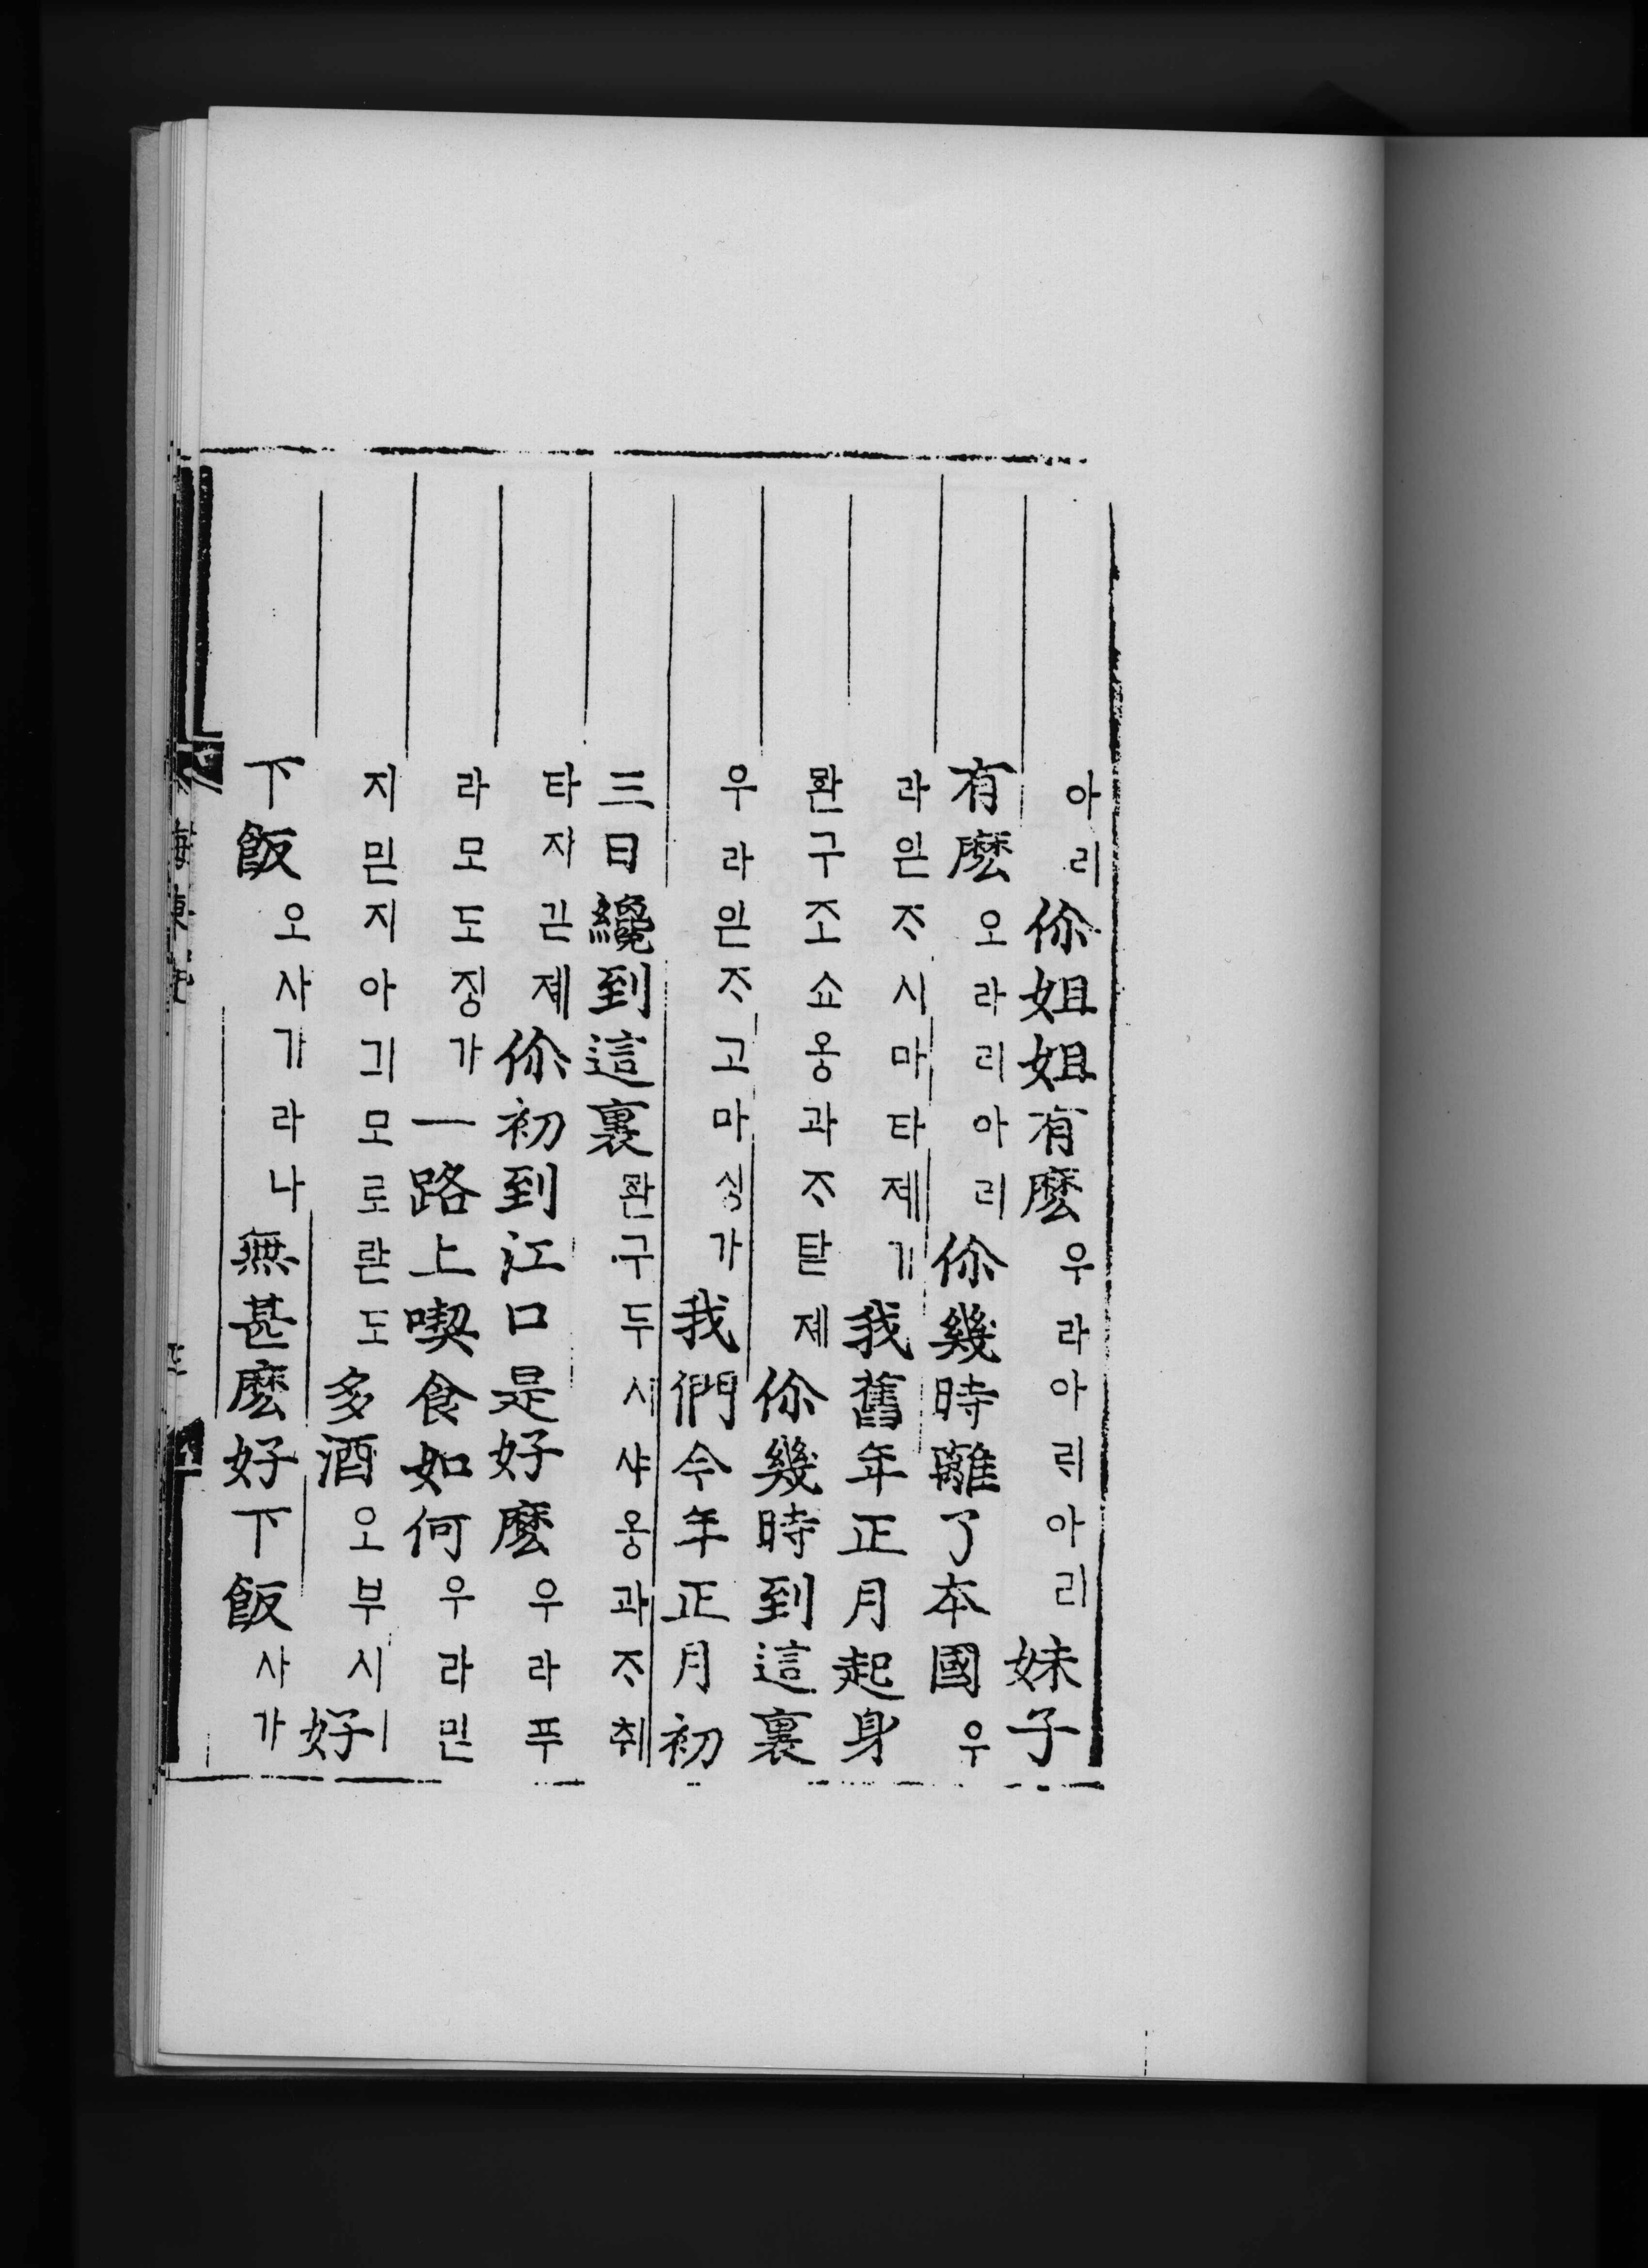 아리 你姐姐有麽 우라아릐아리 妹子
有麽 오라리아리 你幾時離了本國 우
라읻ᄌ시마타졔기 我舊年正月起身
완구조쇼옹과ᄌ탇졔 你幾時到這裏
우라읻ᄌ고마싱가 我們今年正月初
三日纔到這裏 완구두시샤옹과ᄌ취
타자긷졔 你初到江口是好麽 우라푸
라모도징가 一路上喫食如何 우라민
지믿지아긔모로란도 多酒 오부시 好
下飯 오사기라나 無甚麽好下飯 사가